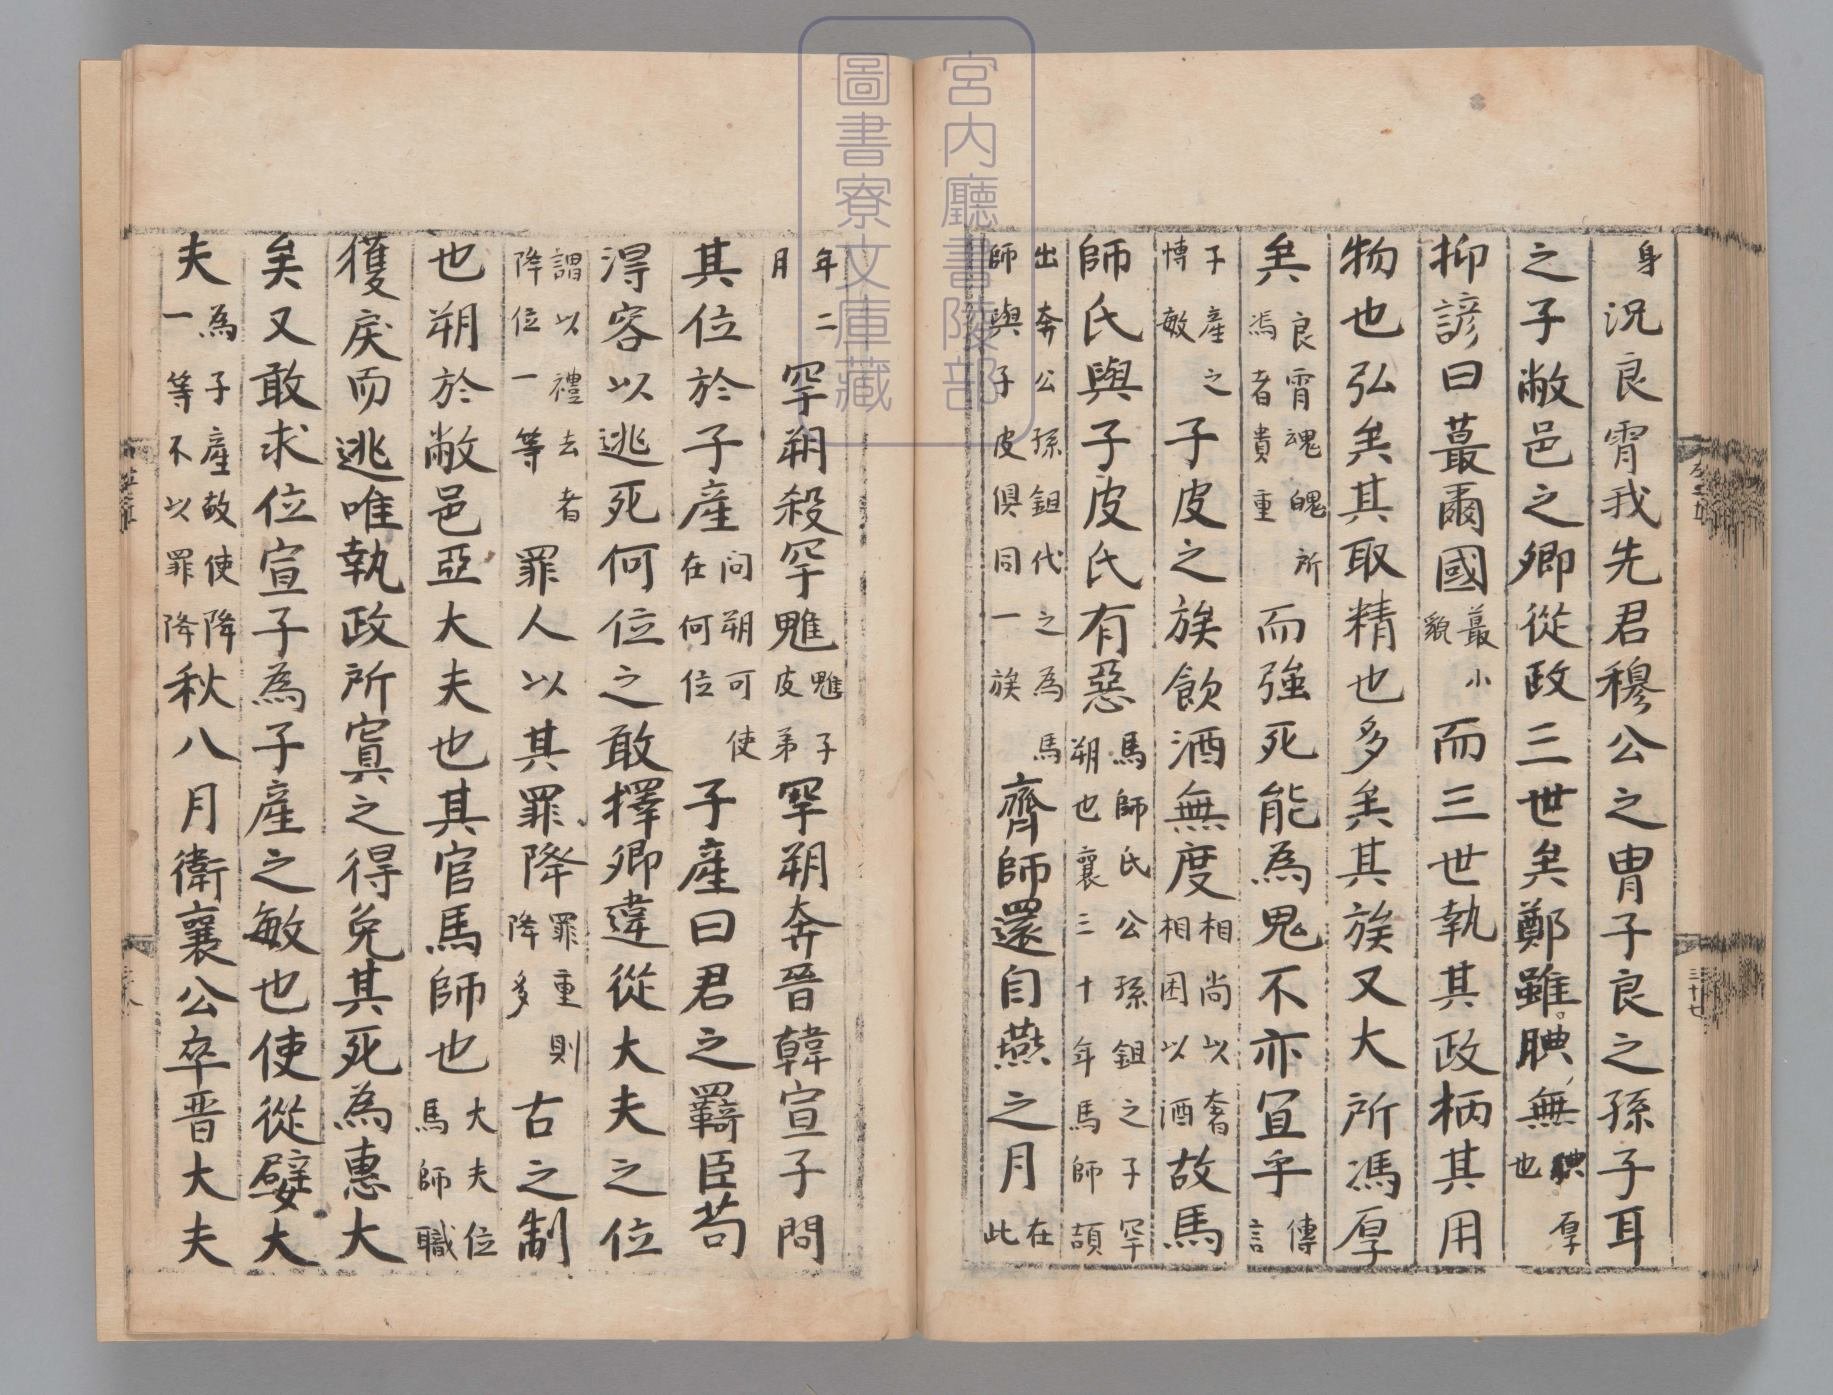 身況良霄我先君穆公之冑子良之孫子耳
之子敝邑之卿從政三世矣鄭雖腆無腆厚也
抑諺曰蕞爾國蕞小貌而三世執其政柄其用
物也弘矣其取精也多矣其族又大所馮厚
矣良霄魂魄所馮者貴重而強死能為鬼不亦宜乎傳言
子產之博敏子皮之族飲酒無度相尚以奢相困以酒故馬
師氏與子皮氏有惡馬師氏公孫鉏之子罕朔也襄三十年馬師頡
出奔公孫鉏代之為馬師與子皮俱同一族齊師還自燕之月在此
年二月罕朔殺罕魋魋子皮弟罕朔奔晉韓宣子問
其位於子產問朔可使在何位子產曰君之羈臣苟
淂容以逃死何位之敢擇卿違從大夫之位
謂以禮去者降位一等罪人以其罪降罪重則降多古之制
也朔於敝邑亞大夫也其官馬師也大夫位馬師職
獲戾而逃唯執政所寘之得免其死為惠大
矣又敢求位宣子為子產之敏也使從嬖大
夫為子產故使降一等不以罪降秋八月衛襄公卒晉大夫
宮内廳書陵部
圖書寮文庫藏